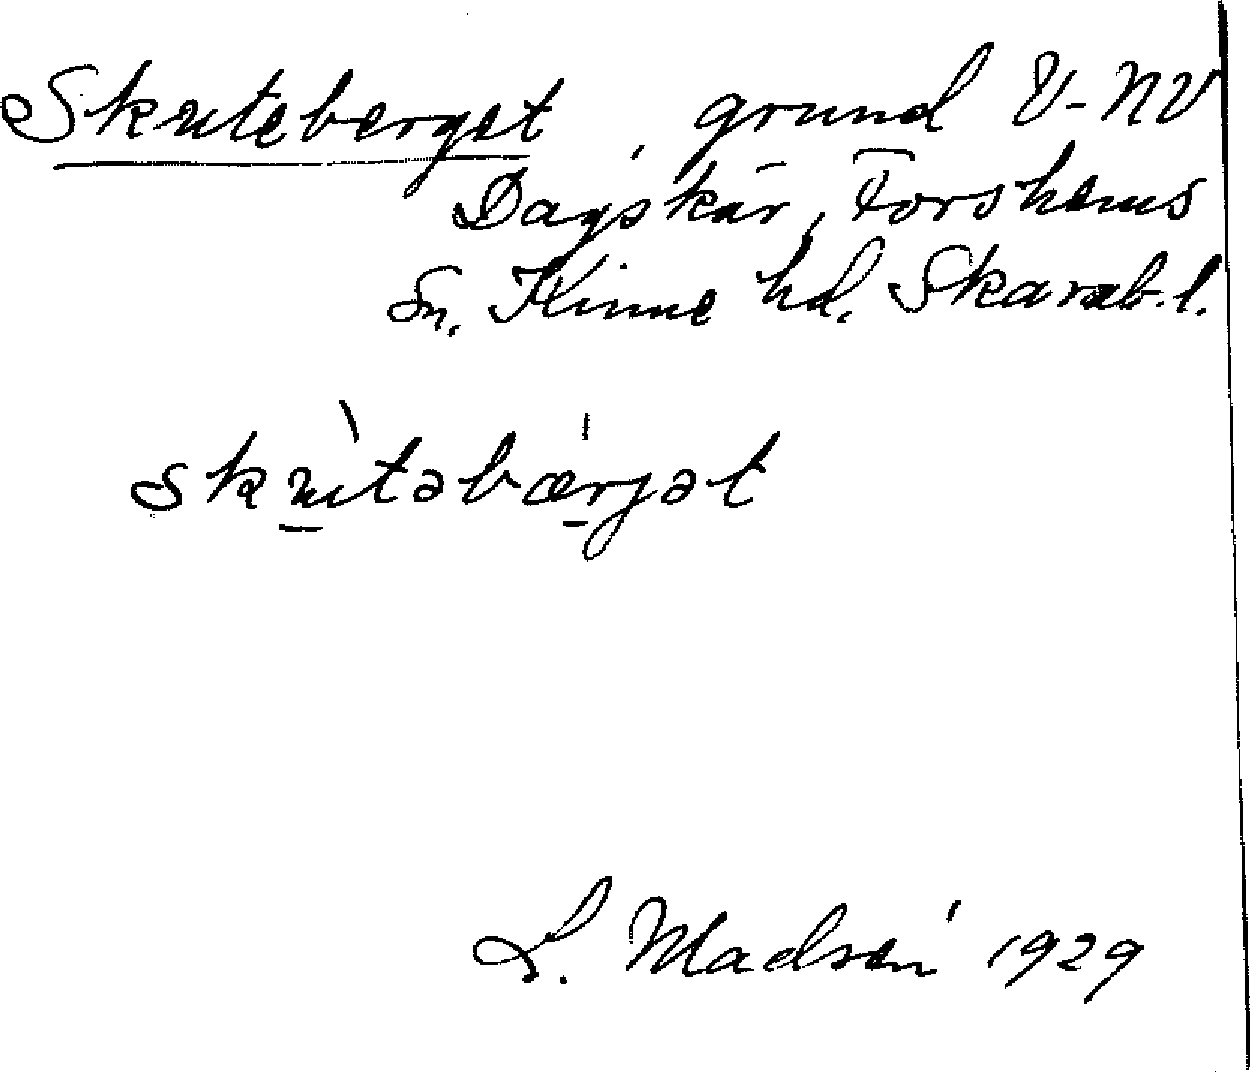 Skuteberget, grund V-NV
Dagskär, Forshems
sn. Kinne hd. Skarab.l.
skùtəbærjət
L. Madsén 1929